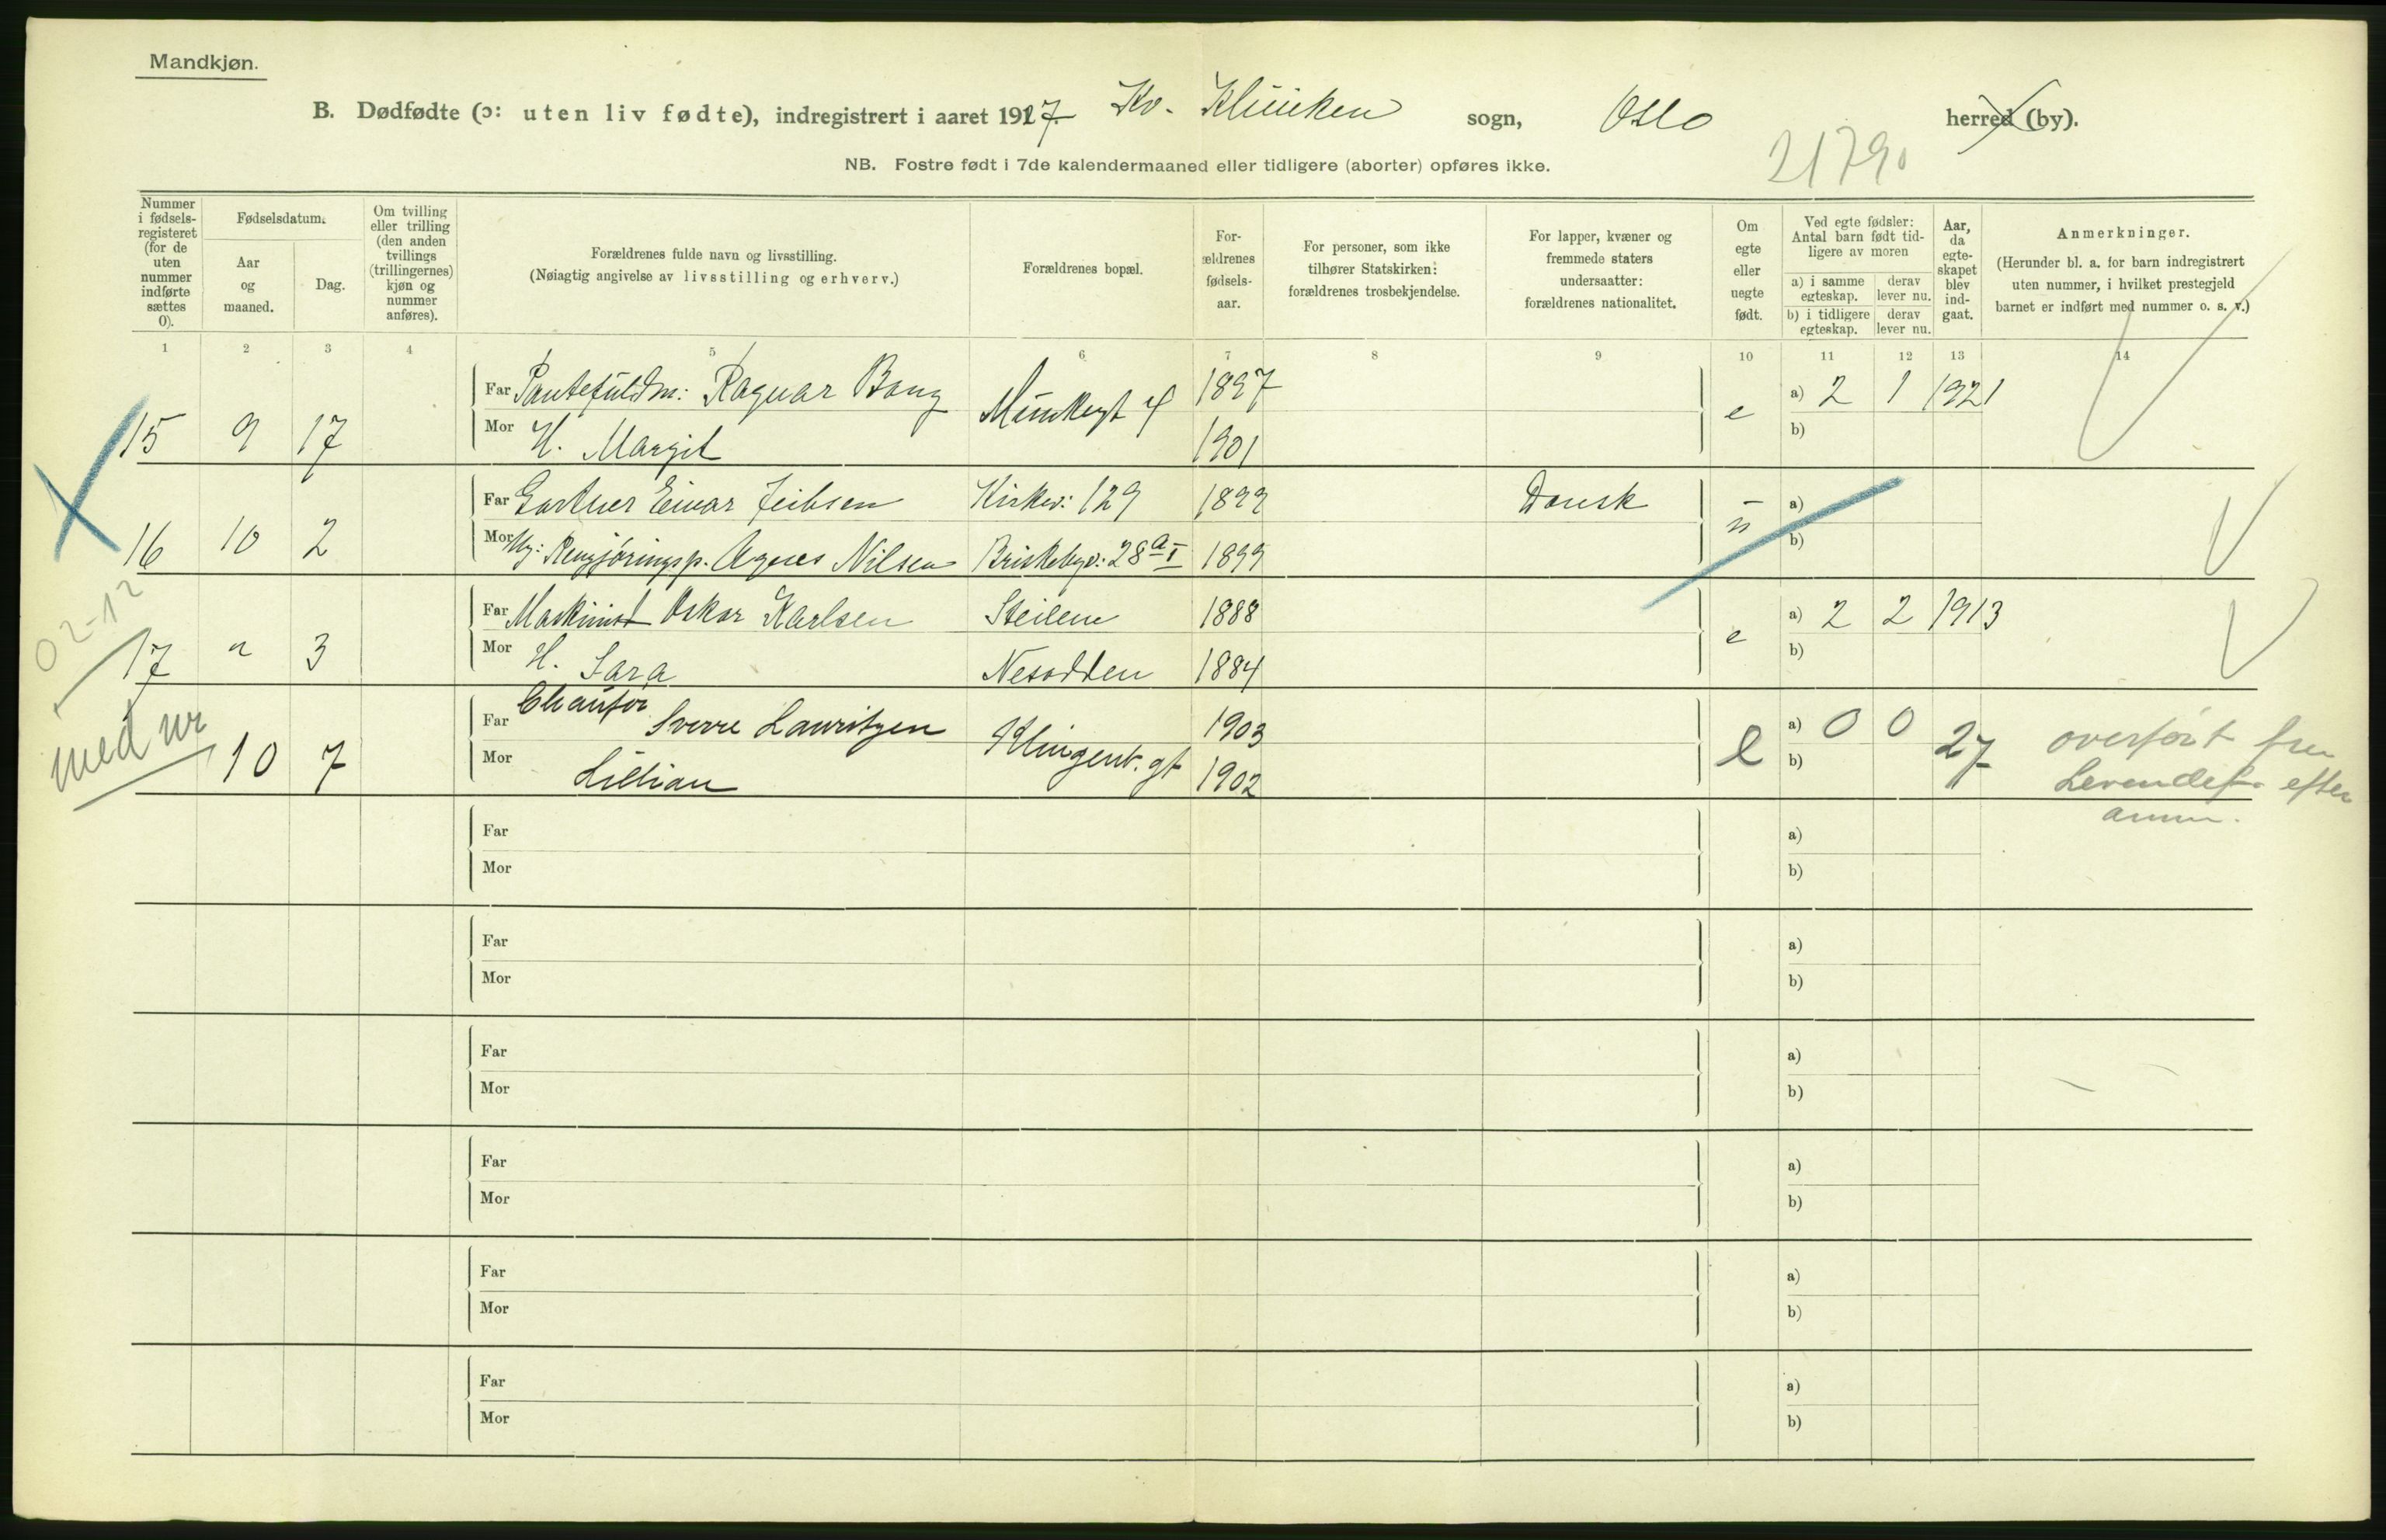 Mandkjøn.
B. Dødfødte (ɔ: uten liv fødte), indregistrert i aaret 1927. Kv. Kliniken sogn, Oslo herred (by).
21790
NB. Fostre født i 7de kalendermaaned eller tidligere (aborter) opføres ikke.
Nummer i fødsels-registeret (for de uten nummer indførte sættes 0).
Fødselsdatum.
Aar og maaned.
Dag.
Om tvilling eller trilling (den anden tvillings (trillingernes) kjøn og nummer anføres).
Forældrenes fulde navn og livsstilling.
(Nøiagtig angivelse av livsstilling og erhverv.)
Forældrenes bopæl.
For-ældrenes fødsels-aar.
For personer, som ikke tilhører Statskirken: forældrenes trosbekjendelse.
For lapper, kvæner og fremmede staters undersaatter: forældrenes nationalitet.
Om egte eller uegte født.
Ved egte fødsler: Antal barn født tid-ligere av moren
a) i samme egteskap. derav lever nu.
b) i tidligere egteskap. derav lever nu.
Aar, da egte-skapet blev ind-gaat.
Anmerkninger.
(Herunder bl. a. for barn indregistrert uten nummer, i hvilket prestegjeld barnet er indført med nummer o. s. v.)
1 2 3 4 5 6 7 8 9 10 11 12 13 14
15 9 17 Far Ragnar Bang Munkegt 4 1897 e a) 2 1 1921
Mor H. Margit 1901 b)
16 10 2 Far Gartner Einar Jeibsen Kirkev: 129 1899 Dansk u a)
Mor Ug: Rengjøringsp. Agnes Nilsen Briskebyv: 28 a I 1899 b)
02-12
17 " 3 Far Maskinist Oskar Karlsen Steilene 1888 e a) 2 2 1913
Mor H. Sara Nesodden 1884 b)
med nr 10 7 Far Chaufør Sverre Lauritzen Klingenb. gt 1903 e a) 0 0 27 overført fra
Mor Lillian 1902 b) Levendef. efter
anm.
Far a)
Mor b)
Far a)
Mor b)
Far a)
Mor b)
Far a)
Mor b)
Far a)
Mor b)
Far a)
Mor b)